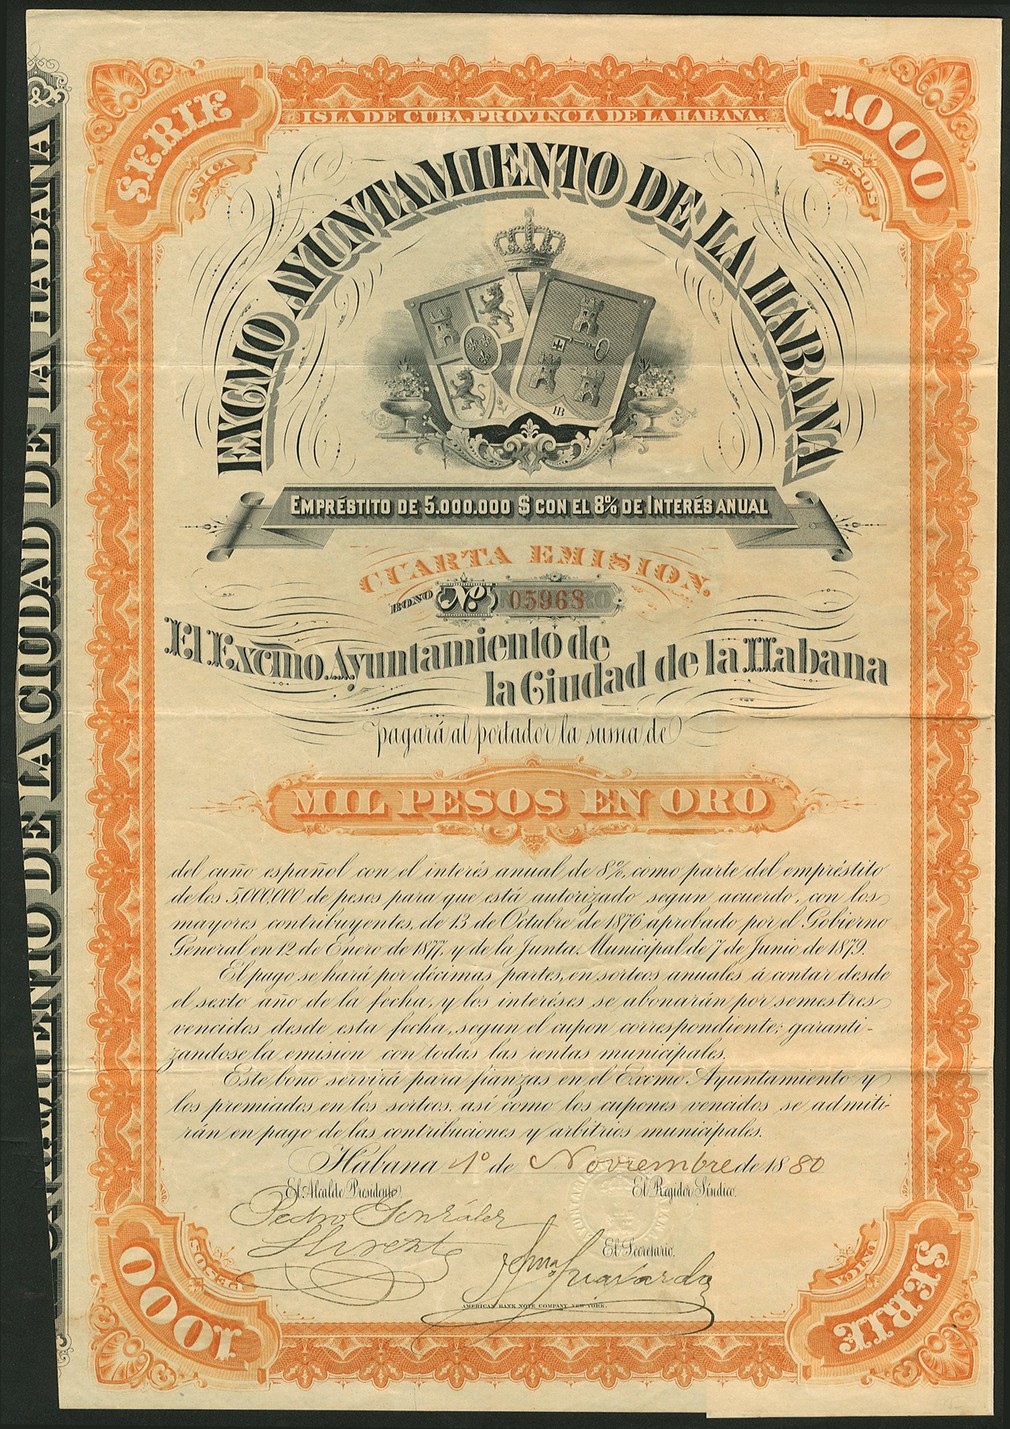 SERIE
UNICA
ISLA DE CUBA. PROVINCIA DE LA HABANA.
1.000
PESOS
EXCMO AYUNTAMIENTO DE LA HABANA
EMPRÉSTITO DE 5.000.000 $ CON EL 8% DE INTERÉS ANUAL
CUARTA EMISION.
BONO Nº 05968
El Excmo. Ayuntamiento de
la Ciudad de la Habana
pagará al portador la suma de
MIL PESOS EN ORO
del cuño español con el interés anual de 8%, como parte del empréstito
de los 5.000.000 de pesos para que está autorizado segun acuerdo, con los
mayores contribuyentes, de 13 de Octubre de 1876 aprobado por el Gobierno
General en 12 de Enero de 1877, y de la Junta Municipal de 7 de Junio de 1879.
El pago se hará por décimas partes, en sorteos anuales á contar desde
el sexto año de la fecha, y los interéses se abonarán por semestres
vencidos desde esta fecha, segun el cupon correspondiente; garanti-
zandose la emision con todas las rentas municipales.
Este bono servirá para fianzas en el Excmo. Ayuntamiento y
los premiados en los sorteos, asi como los cupones vencidos se admiti-
rán en pago de las contribuciones y arbitrios municipales.
Habana 1º de Noviembre de 1880
El Alcalde Presidente
El Regidor Síndico.
Pedro González
Llorente
El Secretario.
AMERICAN BANK NOTE COMPANY NEW YORK.
1.000
PESOS
UNICA
SERIE
AYUNTAMIENTO DE LA CIUDAD DE LA HABANA